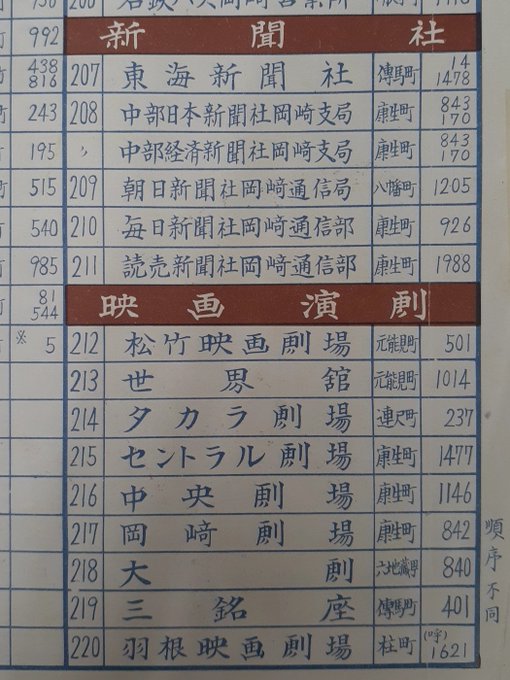 992
438
816
243
195
515
540
985
81
544
※ 5
新聞社
207 東海新聞社 傳馬町 14 1478
208 中部日本新聞社岡﨑支局 康生町 843 170
〃 中部経済新聞社岡﨑支局 康生町 843 170
209 朝日新聞社岡﨑通信局 八幡町 1205
210 毎日新聞社岡﨑通信部 康生町 926
211 読売新聞社岡﨑通信部 康生町 1988
映画演劇
212 松竹映画劇場 元能見町 501
213 世界舘 元能見町 1014
214 タカラ劇場 連尺町 237
215 セントラル劇場 康生町 1477
216 中央劇場 康生町 1146
217 岡﨑劇場 康生町 842
218 大劇 六地蔵町 840
219 三銘座 傳馬町 401
220 羽根映画劇場 柱町 (呼) 1621
順序不同